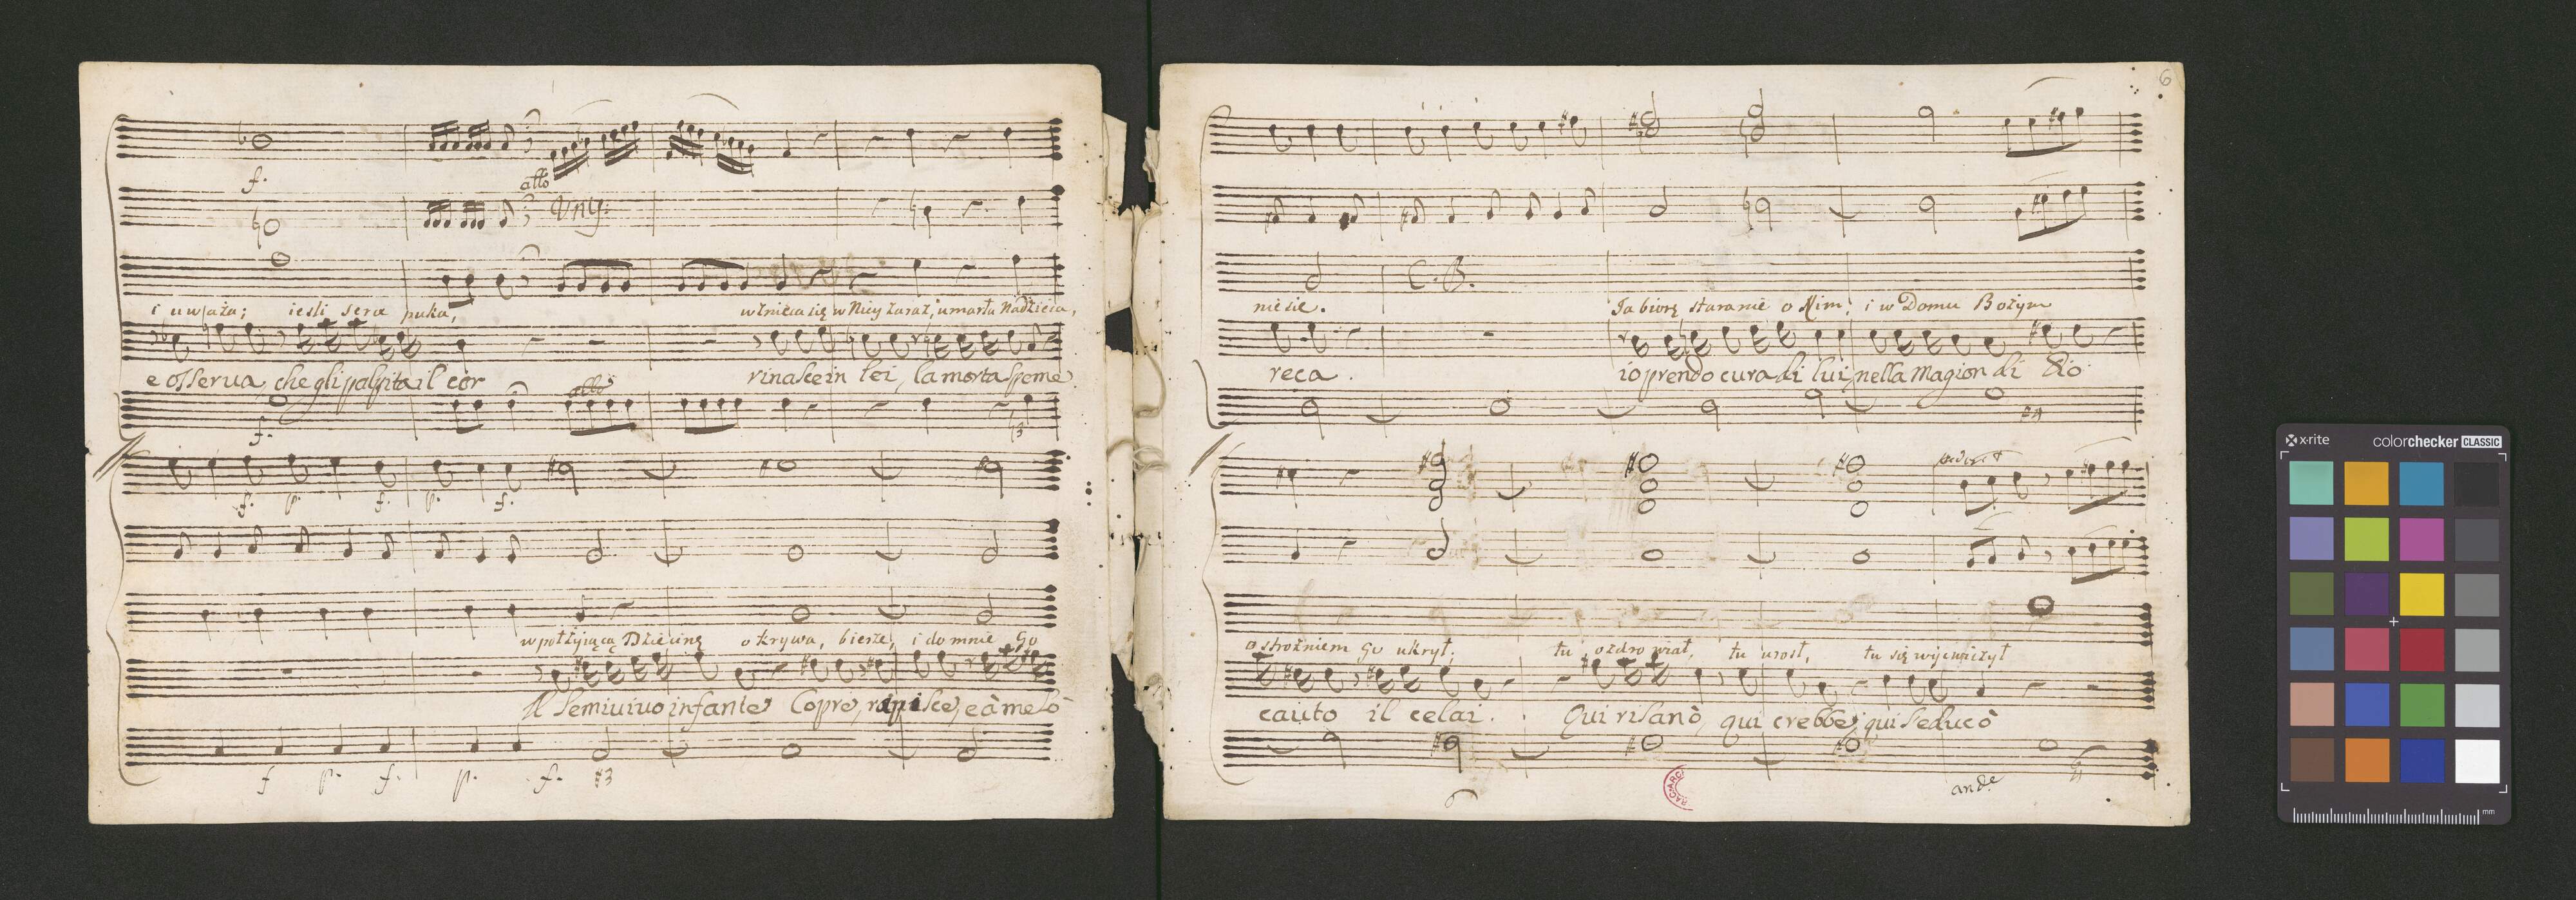 f.
allo
Vny:
i uważa; iesli serce puka, wźnieca się w Niey zaraz, umarła Nadzieia,
e osserua, che gli palpita il cor rinasce in lei, la morta speme
allo
f.
f. p. f. p. f.
wpołżyiącą Dziecinę okrywa, bierze, i do mnie Go
Il semiuiuo infante Copre, rapisce, e à me lò
f p. f. p. f. #3
6
C. B.
niesie. Ja biorę staranie o Nim; i w Domu Bożym
reca. io prendo cura di lui, nella Magion di Dio
ostrożniem Go ukrył; tu ozdrowiał, tu urosł, tu się wyćwiczył
cauto il celai. Qui risanò, qui crebbe, qui s'educò
and.e
6
x-rite colorchecker CLASSIC
mm